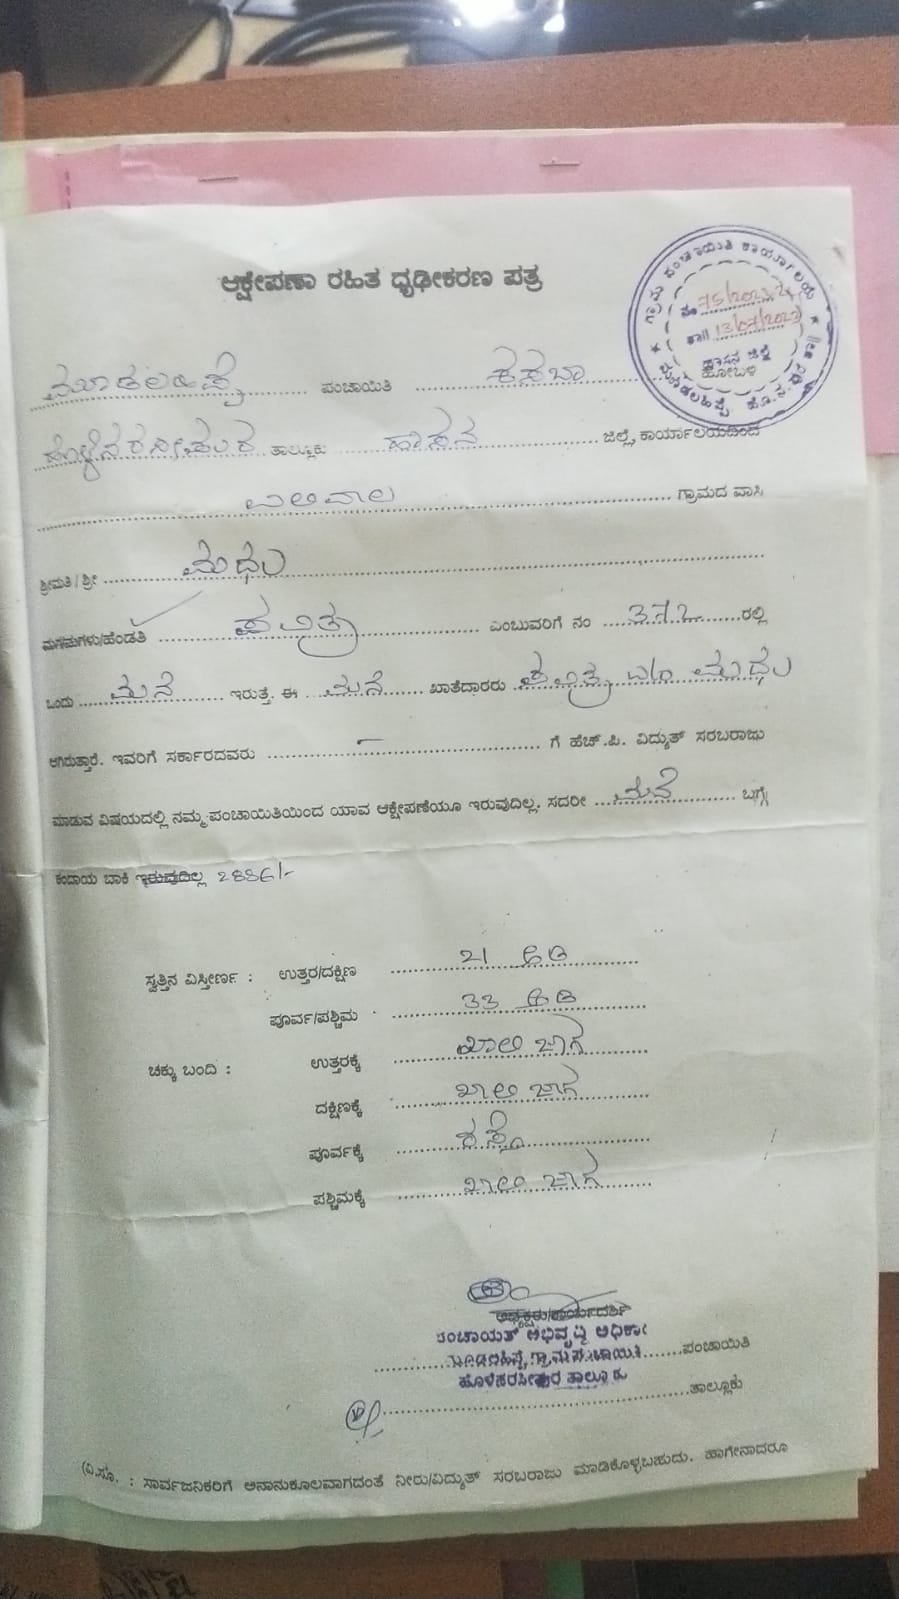 ಆಕ್ಷೇಪಣಾ ರಹಿತ ಧೃಢೀಕರಣ ಪತ್ರ
ಗ್ರಾಮ ಪಂಚಾಯಿತಿ ಕಾರ್ಯಾಲಯ
ನಂ 75/2023-24
ತಾ|| 13/07/2023
ಹಾಸನ ಜಿಲ್ಲೆ
ಹೋಬಳಿ
ಪಂಚಾಯಿತಿ ಕಸಬಾ
ತಾಲ್ಲೂಕು ಹಾಸನ ಜಿಲ್ಲೆ, ಕಾರ್ಯಾಲಯದಿಂದ
ಗ್ರಾಮದ ವಾಸಿ
ಶ್ರೀಮತಿ / ಶ್ರೀ ಮಧು
ಮಗ/ಮಗಳು/ಹೆಂಡತಿ ಪವಿತ್ರಾ ಎಂಬುವರಿಗೆ ನಂ 372 ರಲ್ಲಿ
ಒಂದು ಮನೆ ಇರುತ್ತೆ. ಈ ಮನೆ ಖಾತೆದಾರರು ಪವಿತ್ರ w/o ಮಧು
ಆಗಿರುತ್ತಾರೆ. ಇವರಿಗೆ ಸರ್ಕಾರದವರು – ಗೆ ಹೆಚ್.ಪಿ. ವಿದ್ಯುತ್ ಸರಬರಾಜು
ಮಾಡುವ ವಿಷಯದಲ್ಲಿ ನಮ್ಮ ಪಂಚಾಯಿತಿಯಿಂದ ಯಾವ ಆಕ್ಷೇಪಣೆಯೂ ಇರುವುದಿಲ್ಲ. ಸದರೀ ಮನೆ ಬಗ್ಗೆ
ಕಂದಾಯ ಬಾಕಿ ಇರುವುದಿಲ್ಲ 2886/-
ಸ್ವತ್ತಿನ ವಿಸ್ತೀರ್ಣ : ಉತ್ತರ/ದಕ್ಷಿಣ 21 ಅಡಿ
ಪೂರ್ವ/ಪಶ್ಚಿಮ 33 ಅಡಿ
ಚಕ್ಕು ಬಂದಿ : ಉತ್ತರಕ್ಕೆ ಖಾಲಿ ಜಾಗ
ದಕ್ಷಿಣಕ್ಕೆ ಖಾಲಿ ಜಾಗ
ಪೂರ್ವಕ್ಕೆ ರಸ್ತೆ
ಪಶ್ಚಿಮಕ್ಕೆ ಖಾಲಿ ಜಾಗ
ಅಧ್ಯಕ್ಷರು/ಕಾರ್ಯದರ್ಶಿ
ಪಂಚಾಯಿತಿ
ಹೊಳೆನರಸೀಪುರ ತಾಲ್ಲೂಕು
ತಾಲ್ಲೂಕು
(ವಿ.ಸೂ. : ಸಾರ್ವಜನಿಕರಿಗೆ ಅನಾನುಕೂಲವಾಗದಂತೆ ನೀರು/ವಿದ್ಯುತ್ ಸರಬರಾಜು ಮಾಡಿಕೊಳ್ಳಬಹುದು. ಹಾಗೇನಾದರೂ